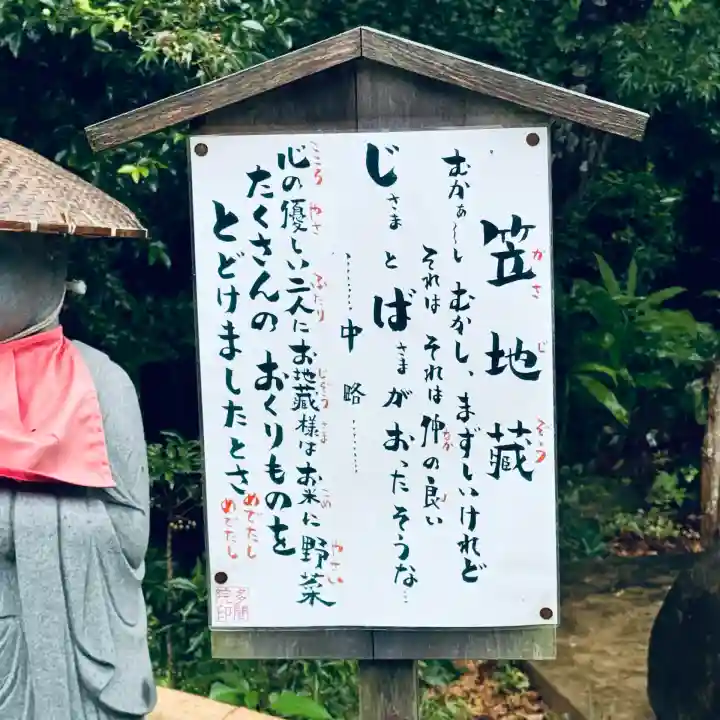 笠地蔵
がさじぞう
むかぁ〜しむかし、まずしいけれど
それは それは 仲の良い
なか
じさまとばさまがおったそうな…
………中略………
心の優しい二人にお地蔵様はお米に野菜
こころ やさ ふたり じぞうさま こめ やさい
たくさんの おくりものを
とどけましたとさ
めでたし
めでたし
多聞院印